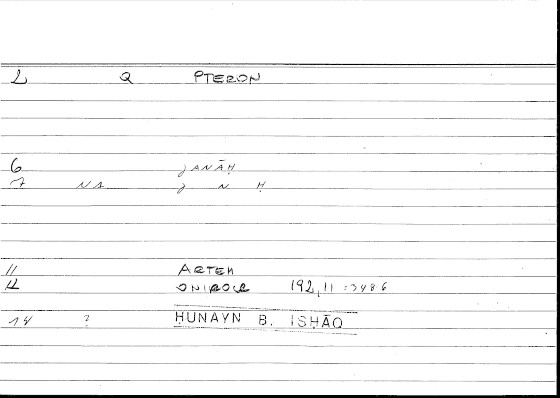 2 Q PTERON
6 ǧANĀḤ
7 NA ǧ N Ḥ
11 ARTEM
12 ONIROCR 192,11 :3486
14 ? ḤUNAYN B. ISḤĀQ